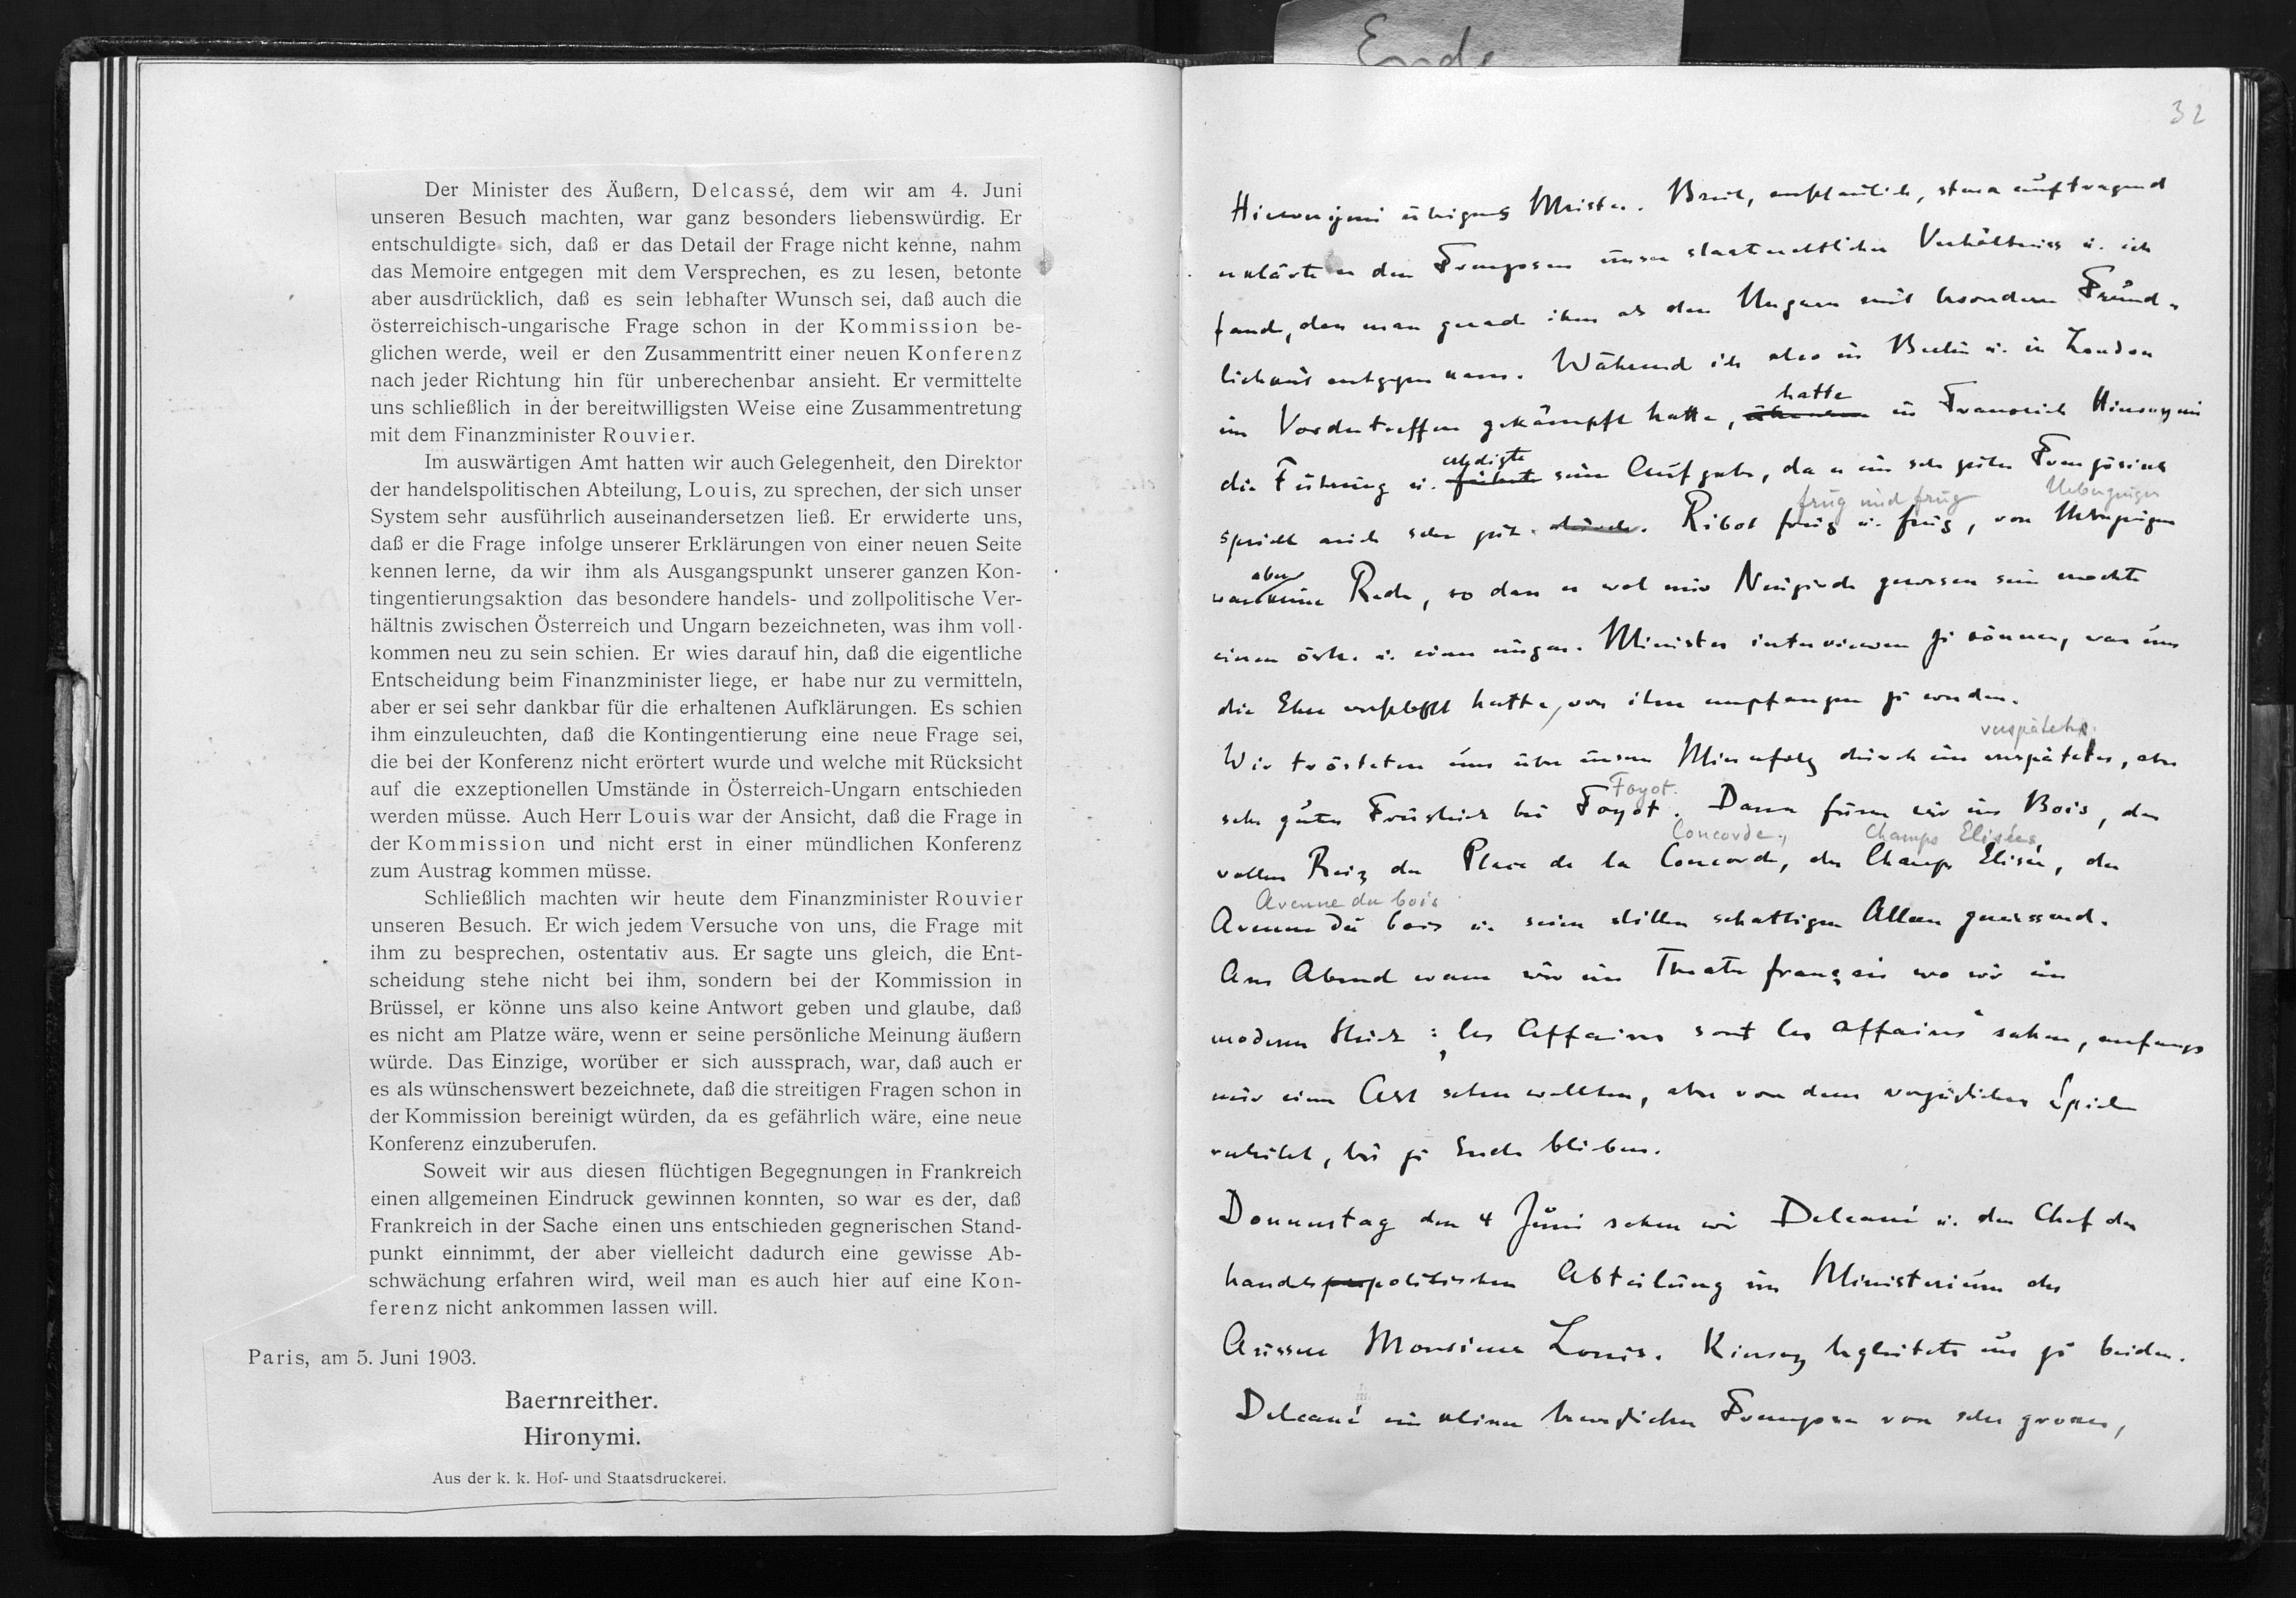 Ende
Der Minister des Äußern, Delcassé, dem wir am 4. Juni
unseren Besuch machten, war ganz besonders liebenswürdig. Er
entschuldigte sich, daß er das Detail der Frage nicht kenne, nahm
das Memoire entgegen mit dem Versprechen, es zu lesen, betonte
aber ausdrücklich, daß es sein lebhafter Wunsch sei, daß auch die
österreichisch-ungarische Frage schon in der Kommission be-
glichen werde, weil er den Zusammentritt einer neuen Konferenz
nach jeder Richtung hin für unberechenbar ansieht. Er vermittelte
uns schließlich in der bereitwilligsten Weise eine Zusammentretung
mit dem Finanzminister Rouvier.
Im auswärtigen Amt hatten wir auch Gelegenheit, den Direktor
der handelspolitischen Abteilung, Louis, zu sprechen, der sich unser
System sehr ausführlich auseinandersetzen ließ. Er erwiderte uns,
daß er die Frage infolge unserer Erklärungen von einer neuen Seite
kennen lerne, da wir ihm als Ausgangspunkt unserer ganzen Kon-
tingentierungsaktion das besondere handels- und zollpolitische Ver-
hältnis zwischen Österreich und Ungarn bezeichneten, was ihm voll-
kommen neu zu sein schien. Er wies darauf hin, daß die eigentliche
Entscheidung beim Finanzminister liege, er habe nur zu vermitteln,
aber er sei sehr dankbar für die erhaltenen Aufklärungen. Es schien
ihm einzuleuchten, daß die Kontingentierung eine neue Frage sei,
die bei der Konferenz nicht erörtert wurde und welche mit Rücksicht
auf die exzeptionellen Umstände in Österreich-Ungarn entschieden
werden müsse. Auch Herr Louis war der Ansicht, daß die Frage in
der Kommission und nicht erst in einer mündlichen Konferenz
zum Austrag kommen müsse.
Schließlich machten wir heute dem Finanzminister Rouvier
unseren Besuch. Er wich jedem Versuche von uns, die Frage mit
ihm zu besprechen, ostentativ aus. Er sagte uns gleich, die Ent-
scheidung stehe nicht bei ihm, sondern bei der Kommission in
Brüssel, er könne uns also keine Antwort geben und glaube, daß
es nicht am Platze wäre, wenn er seine persönliche Meinung äußern
würde. Das Einzige, worüber er sich aussprach, war, daß auch er
es als wünschenswert bezeichnete, daß die streitigen Fragen schon in
der Kommission bereinigt würden, da es gefährlich wäre, eine neue
Konferenz einzuberufen.
Soweit wir aus diesen flüchtigen Begegnungen in Frankreich
einen allgemeinen Eindruck gewinnen konnten, so war es der, daß
Frankreich in der Sache einen uns entschieden gegnerischen Stand-
punkt einnimmt, der aber vielleicht dadurch eine gewisse Ab-
schwächung erfahren wird, weil man es auch hier auf eine Kon-
ferenz nicht ankommen lassen will.
Paris, am 5. Juni 1903.
Baernreither.
Hironymi.
Aus der k. k. Hof- und Staatsdruckerei.
32
Hieronymi übrigens Meister. Breit, etwas auftragend
erklärte er den Franzosen unser staatsrechtliches Verhältniss u. ich
fand, dass man gerade ihm als den Ungarn mit besonderer Freund-
lichkeit entgegen kam. Während ich also in Berlin u. in London
hatte
im Vordertreffen gekämpft hatte, in Frankreich Hieronymi
erledigte
die Führung u. seine Aufgabe, da er ein sehr guter Französisch
frug und frug Ueberzeugen
spricht auch sehr gut. Ribot frug u. frug, von Ueberzeugen
aber
war keine Rede, so dass es wol nur Neugierde gewesen sein mochte
einen österr. u. einen ungar. Minister interviewen zu können, was uns
die Ehre verschafft hatte, von ihm empfangen zu werden.
verspätetes
Wir trösteten uns über unseren Misserfolg durch ein verspätetes, aber
Foyot.
sehr gutes Frühstück bei Foyot. Dann fuhren wir ins Bois, den
Concorde, Champs Elisées
vollen Reiz der Place de la Concorde, der Champs Elisée, der
Avenue du bois
Avenue du bois u. seiner stillen schattigen Alleen geniessend.
Am Abend waren wir im Theatre français wo wir ein
modernes Stück: „les Affaires sont les affaires“ sahen, anfangs
nur einen Akt sehen wollten, aber von dem vorzüglichen Spiele
gefesselt, bis zu Ende blieben.
Donnerstag den 4 Juni sahen wir Delcassé u. den Chef der
handelspolitischen Abteilung im Ministerium des
Aeussern Monsieur Louis. Kinsky begleitete uns zu beiden.
Delcassé ein kleiner beweglicher Franzose von sehr grossen,